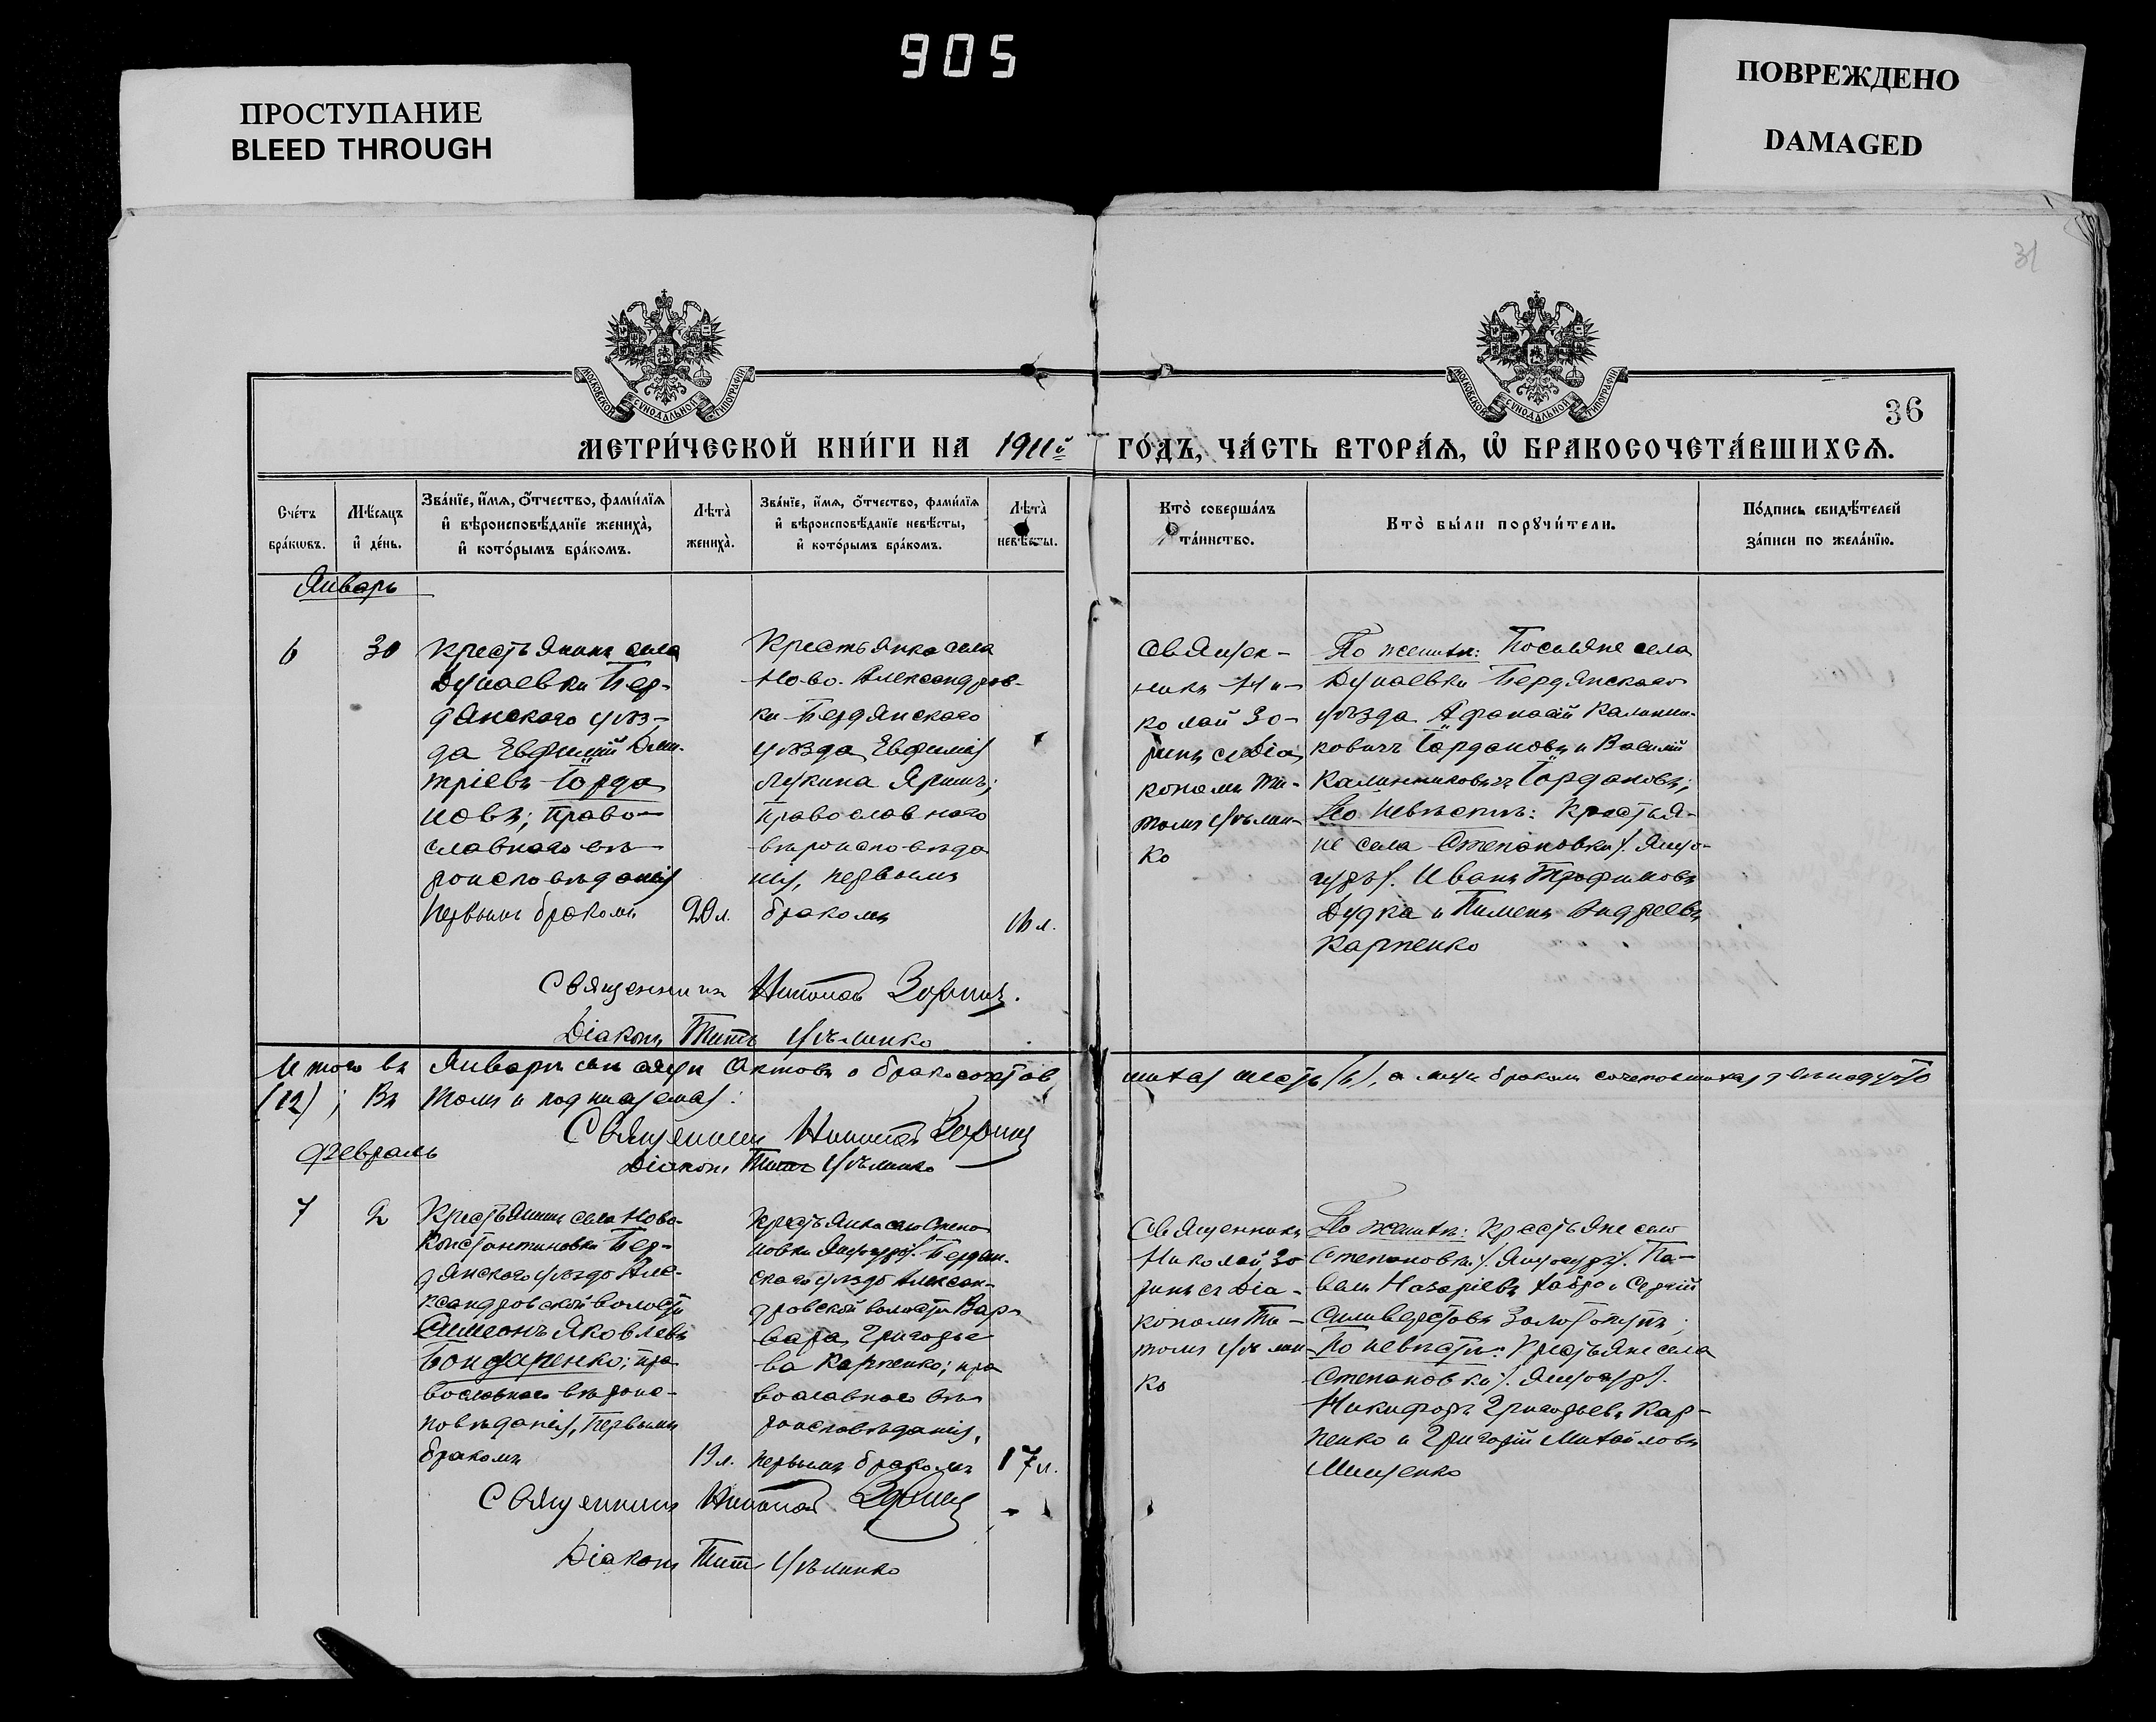 905
ПРОСТУПАНИЕ
BLEED THROUGH
ПОВРЕЖДЕНО
DAMAGED
31
МОСКОВСКОЙ СѴНОДАЛЬНОЙ ТИПОГРАФІИ
МОСКОВСКОЙ СѴНОДАЛЬНОЙ ТИПОГРАФІИ
36
МЕТРИ́ЧЕСКОЙ КНИ́ГИ НА 1911й ГО́ДЪ, ЧА́СТЬ ВТОРА́Ѧ, Ѽ БРАКОСОЧЕТА́ВШИХСѦ.
Сче́тъ
бра́кѡвъ.
Мѣ́сяцъ
и҆ де́нь.
Зва́нїе, и҆́мя, ѻ҆́тчество, фами́лїя
и҆ вѣроисповѣ́данїе жениха̀,
и҆ кото́рымъ бра́комъ.
Лѣта̀
жениха̀.
Зва́нїе, и҆́мя, ѻ҆́тчество, фами́лїя
и҆ вѣроисповѣ́данїе невѣ́сты,
и҆ кото́рымъ бра́комъ.
Лѣта̀
невѣ́сты.
Кто̀ соверша́лъ
та́инство.
Кто̀ бы́ли порꙋчи́тели.
По́дпись свидѣ́телей
за́писи по жела́нїю.
Январь
6
30
Крестьянинъ села
Дунаевки Бер-
дянскаго уѣз-
да Евфимій Дми-
тріевъ Іорда
новъ; право-
славнаго вѣ-
роисповѣданія
первымъ бракомъ
20 л.
Крестьянка села
Ново-Александров-
ки Бердянскаго
уѣзда Евфимія
Лукина Яришъ;
православнаго
вѣроисповѣда
нія, первымъ
бракомъ
Священ-
никъ Ни-
колай Зо-
ринъ съ Діа
кономъ Ти-
томъ
ко
По женихѣ: Поселяне села
Дунаевки Бердянскаго
уѣзда Афанасій Калинни-
ковичъ Іордановъ и Василій
Калинниковичъ Іордановъ;
По невѣстѣ: Крестья-
не села Степановки
Иванъ Трофимовъ
Дудка и Пименъ Андреевъ
Карпенко
Священникъ Николай Зоринъ.
Діаконъ Титъ
Итого въ Январѣ мѣсяцѣ актовъ о бракосочетав
шихся шесть (6), а лицъ бракомъ сочетавшихся двѣнадцать
(12); въ томъ и подписуемся:
Священникъ Николай Зоринъ
Діаконъ Титъ
Февраль
7
2
Крестьянинъ села Ново-
константиновки Бер-
дянскаго уѣзда Але-
ксандровской волости
Симеонъ Яковлевъ
Бондаренко; пра
вославнаго вѣроис-
повѣданія, первымъ
бракомъ
19 л.
Крестьянка села Степа
новки Бердян-
скаго уѣзда Алексан-
дровской волости Вар-
вара Григорье
ва Карпенко; пра
вославнаго вѣ-
роисповѣданія,
первымъ бракомъ
17 л.
Священникъ
Николай Зо
ринъ съ Діа-
кономъ Ти-
томъ
ко
По женихѣ: крестьяне села
Степановки Па-
велъ Назаріевъ и Сергій
Силиверстовъ
По невѣстѣ: Крестьяне села
Степановки
Никифоръ Григорьевъ Кар-
пенко и Григорій Михайловъ
Мищенко
Священникъ Николай Зоринъ
Діаконъ Титъ